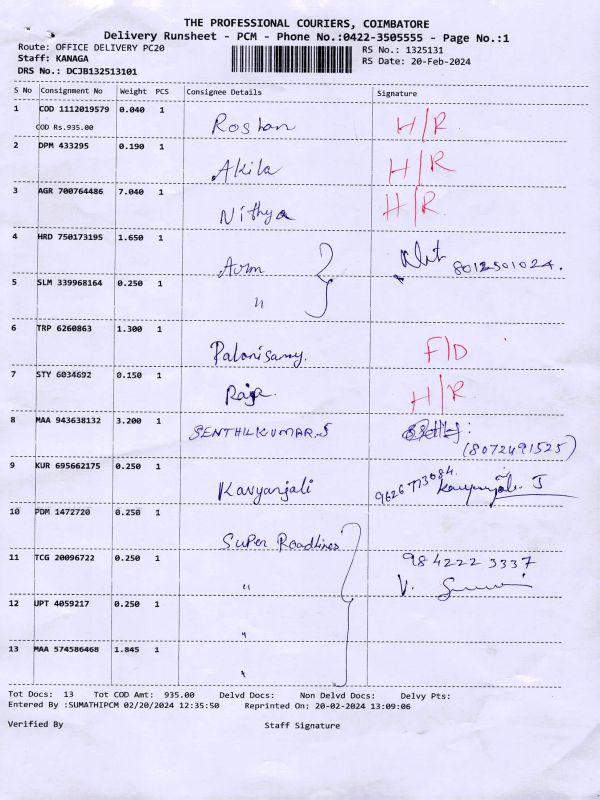 THE PROFESSIONAL COURIERS, COIMBATORE
Delivery Runsheet - PCM - Phone No.:0422-3505555 - Page No.:1
Route: OFFICE DELIVERY PC20 RS No.: 1325131
Staff: KANAGA RS Date: 20-Feb-2024
DRS No.: DCJB132513101
S No Consignment No Weight PCS Consignee Details Signature
1 COD 1112019579 0.040 1 Roshan H/R
COD Rs.935.00
2 DPM 433295 0.190 1 Akila H/R
3 AGR 700764486 7.040 1 Nithya H/R
4 HRD 750173195 1.650 1 8012501024.
5 SLM 339968164 0.250 1 "
6 TRP 6260863 1.300 1 Palanisamy. F/D
7 STY 6034692 0.150 1 Raja. H/R.
8 MAA 943638132 3.200 1 SENTHILKUMAR.S (8072491525)
9 KUR 695662175 0.250 1 Kavyanjali 9626773084. J
10 PDM 1472720 0.250 1 Super Roadlines
11 TCG 20096722 0.250 1 " 984222 3337
V.
12 UPT 4059217 0.250 1 "
13 MAA 574586468 1.845 1 "
Tot Docs: 13 Tot COD Amt: 935.00 Delvd Docs: Non Delvd Docs: Delvy Pts:
Entered By :SUMATHIPCM 02/20/2024 12:35:50 Reprinted On: 20-02-2024 13:09:06
Verified By Staff Signature